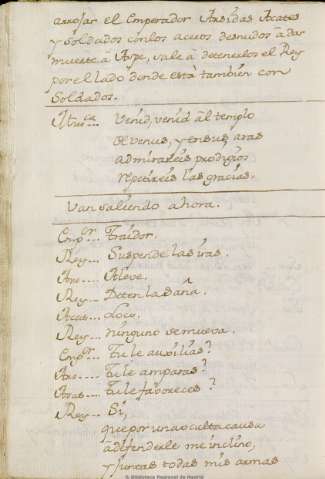 arrojar el Emperador Arsidas Acates
y Soldados con los aceros desnudos a dar
muerte à Aspe, sale à detenerlos el Rey
por el lado donde està tambien con
Soldados.
Musca... Venid, venid al templo
de venus, y en sus aras
admirareis prodigios
repetireis las gracias.
Van saliendo ahora.
Empor... Traidor.
Rey... Suspende las iras.
Ars... Aleve.
Rey... Deten la saña.
Acas... Loco.
Rey... ninguno se mueva.
Empor... Tu le auxilias?
Ars... Tu le amparas?
Tu le faboreces?
Rey... Si,
que por una oculta causa
à defenderle me inclino,
y juntas todas mis armas
© Biblioteca Nacional de España